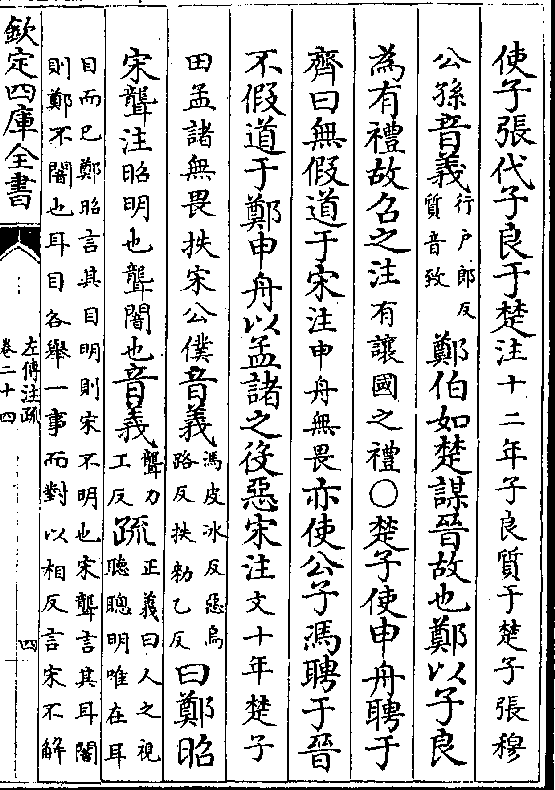 使子張代子良于楚注十二年子良質于楚子張穆
公孫音義行戶郎反質音致鄭伯如楚謀晉故也鄭以子良
為有禮故召之注有讓國之禮○楚子使申舟聘于
齊曰無假道于宋注申舟無畏亦使公子馮聘于晉
不假道于鄭申舟以孟諸之役惡宋注文十年楚子
田孟諸無畏抶宋公僕音義馮皮冰反惡烏路反抶勑乙反曰鄭昭
宋聾注昭明也聾闇也音義聾力工反疏正義曰人之視聽聰明唯在耳
目而已鄭昭言其目明則宋不明也宋聾言其耳闇
則鄭不闇也耳目各舉一事而對以相反言宋不解
欽定四庫全書
左傳注疏
卷二十四
四